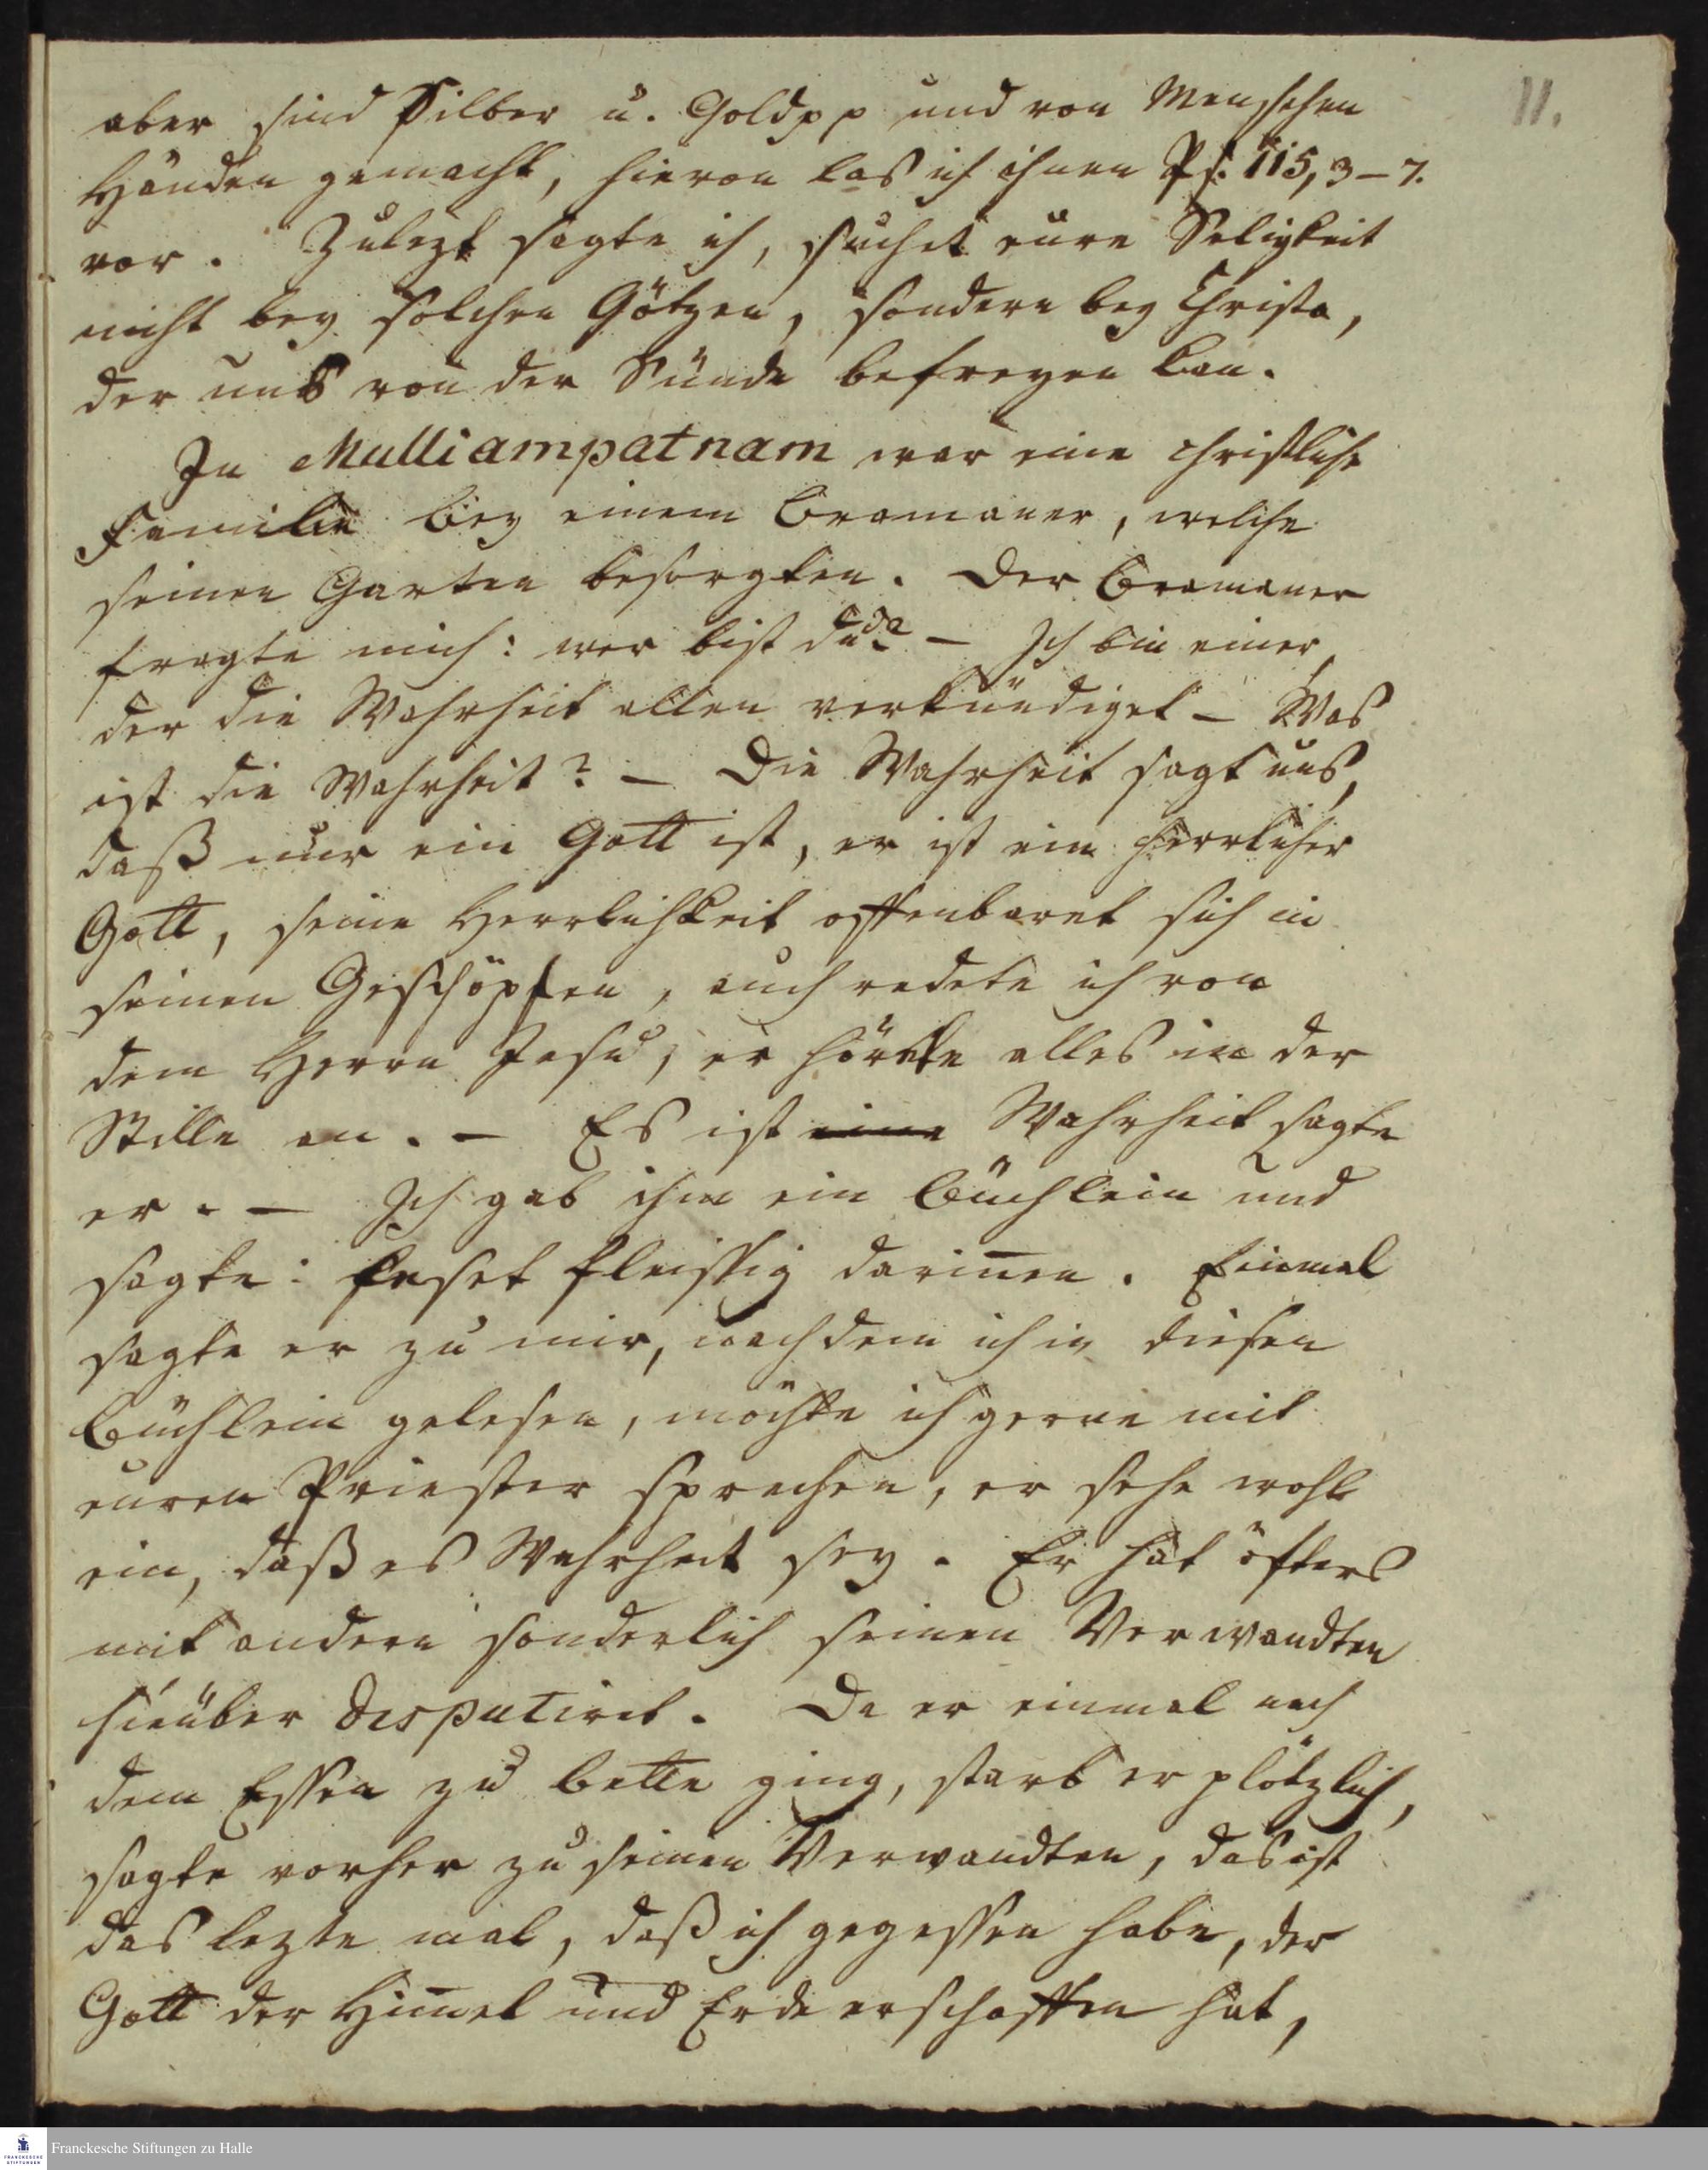 11.
aber sind Silber u. Gold pp und von Menschen
Händen gemacht, hievon las ich ihnen Ps. 115, 3–7.
vor. Zulezt sagte ich, suchet eure Seligkeit
nicht bey solchen Götzen, sondern bey Christo,
der uns von der Sünde befreyen kan.
In Mulliampatnam war eine christliche
Familie bey einem Bramaner, welche
seinen Garten besorgten. Der Bramaner
fragte mich: wer bist du? – Ich bin einer,
der die Wahrheit allen verkündiget – Was
ist die Wahrheit? – Die Wahrheit sagt uns,
daß nur ein Gott ist, er ist ein herrlicher
Gott, seine Herrlichkeit offenbaret sich in
seinen Geschöpfen, auch redete ich von
dem Herrn Jesu, er hörte alles in der
Stille an. – Es ist eine Wahrheit sagte
er. – Ich gab ihm ein Büchlein und
sagte: leset fleissig dariñen. Einmal
sagte er zu mir, nachdem ich in diesen
Büchlein gelesen, möchte ich gerne mit
euren Priester sprechen, er sehe wohl
ein, daß es Wahrheit sey. Er hat öfters
mit andern sonderlich seinen Verwandten
hieüber disputiret. Da er einmal nach
dem Essen zu Bette ging, starb er plötzlich,
sagte vorher zu seinen Verwandten, das ist
das lezte mal, daß ich gegessen habe, der
Gott der Him̃el und Erde erschaffen hat,
Franckesche Stiftungen zu Halle